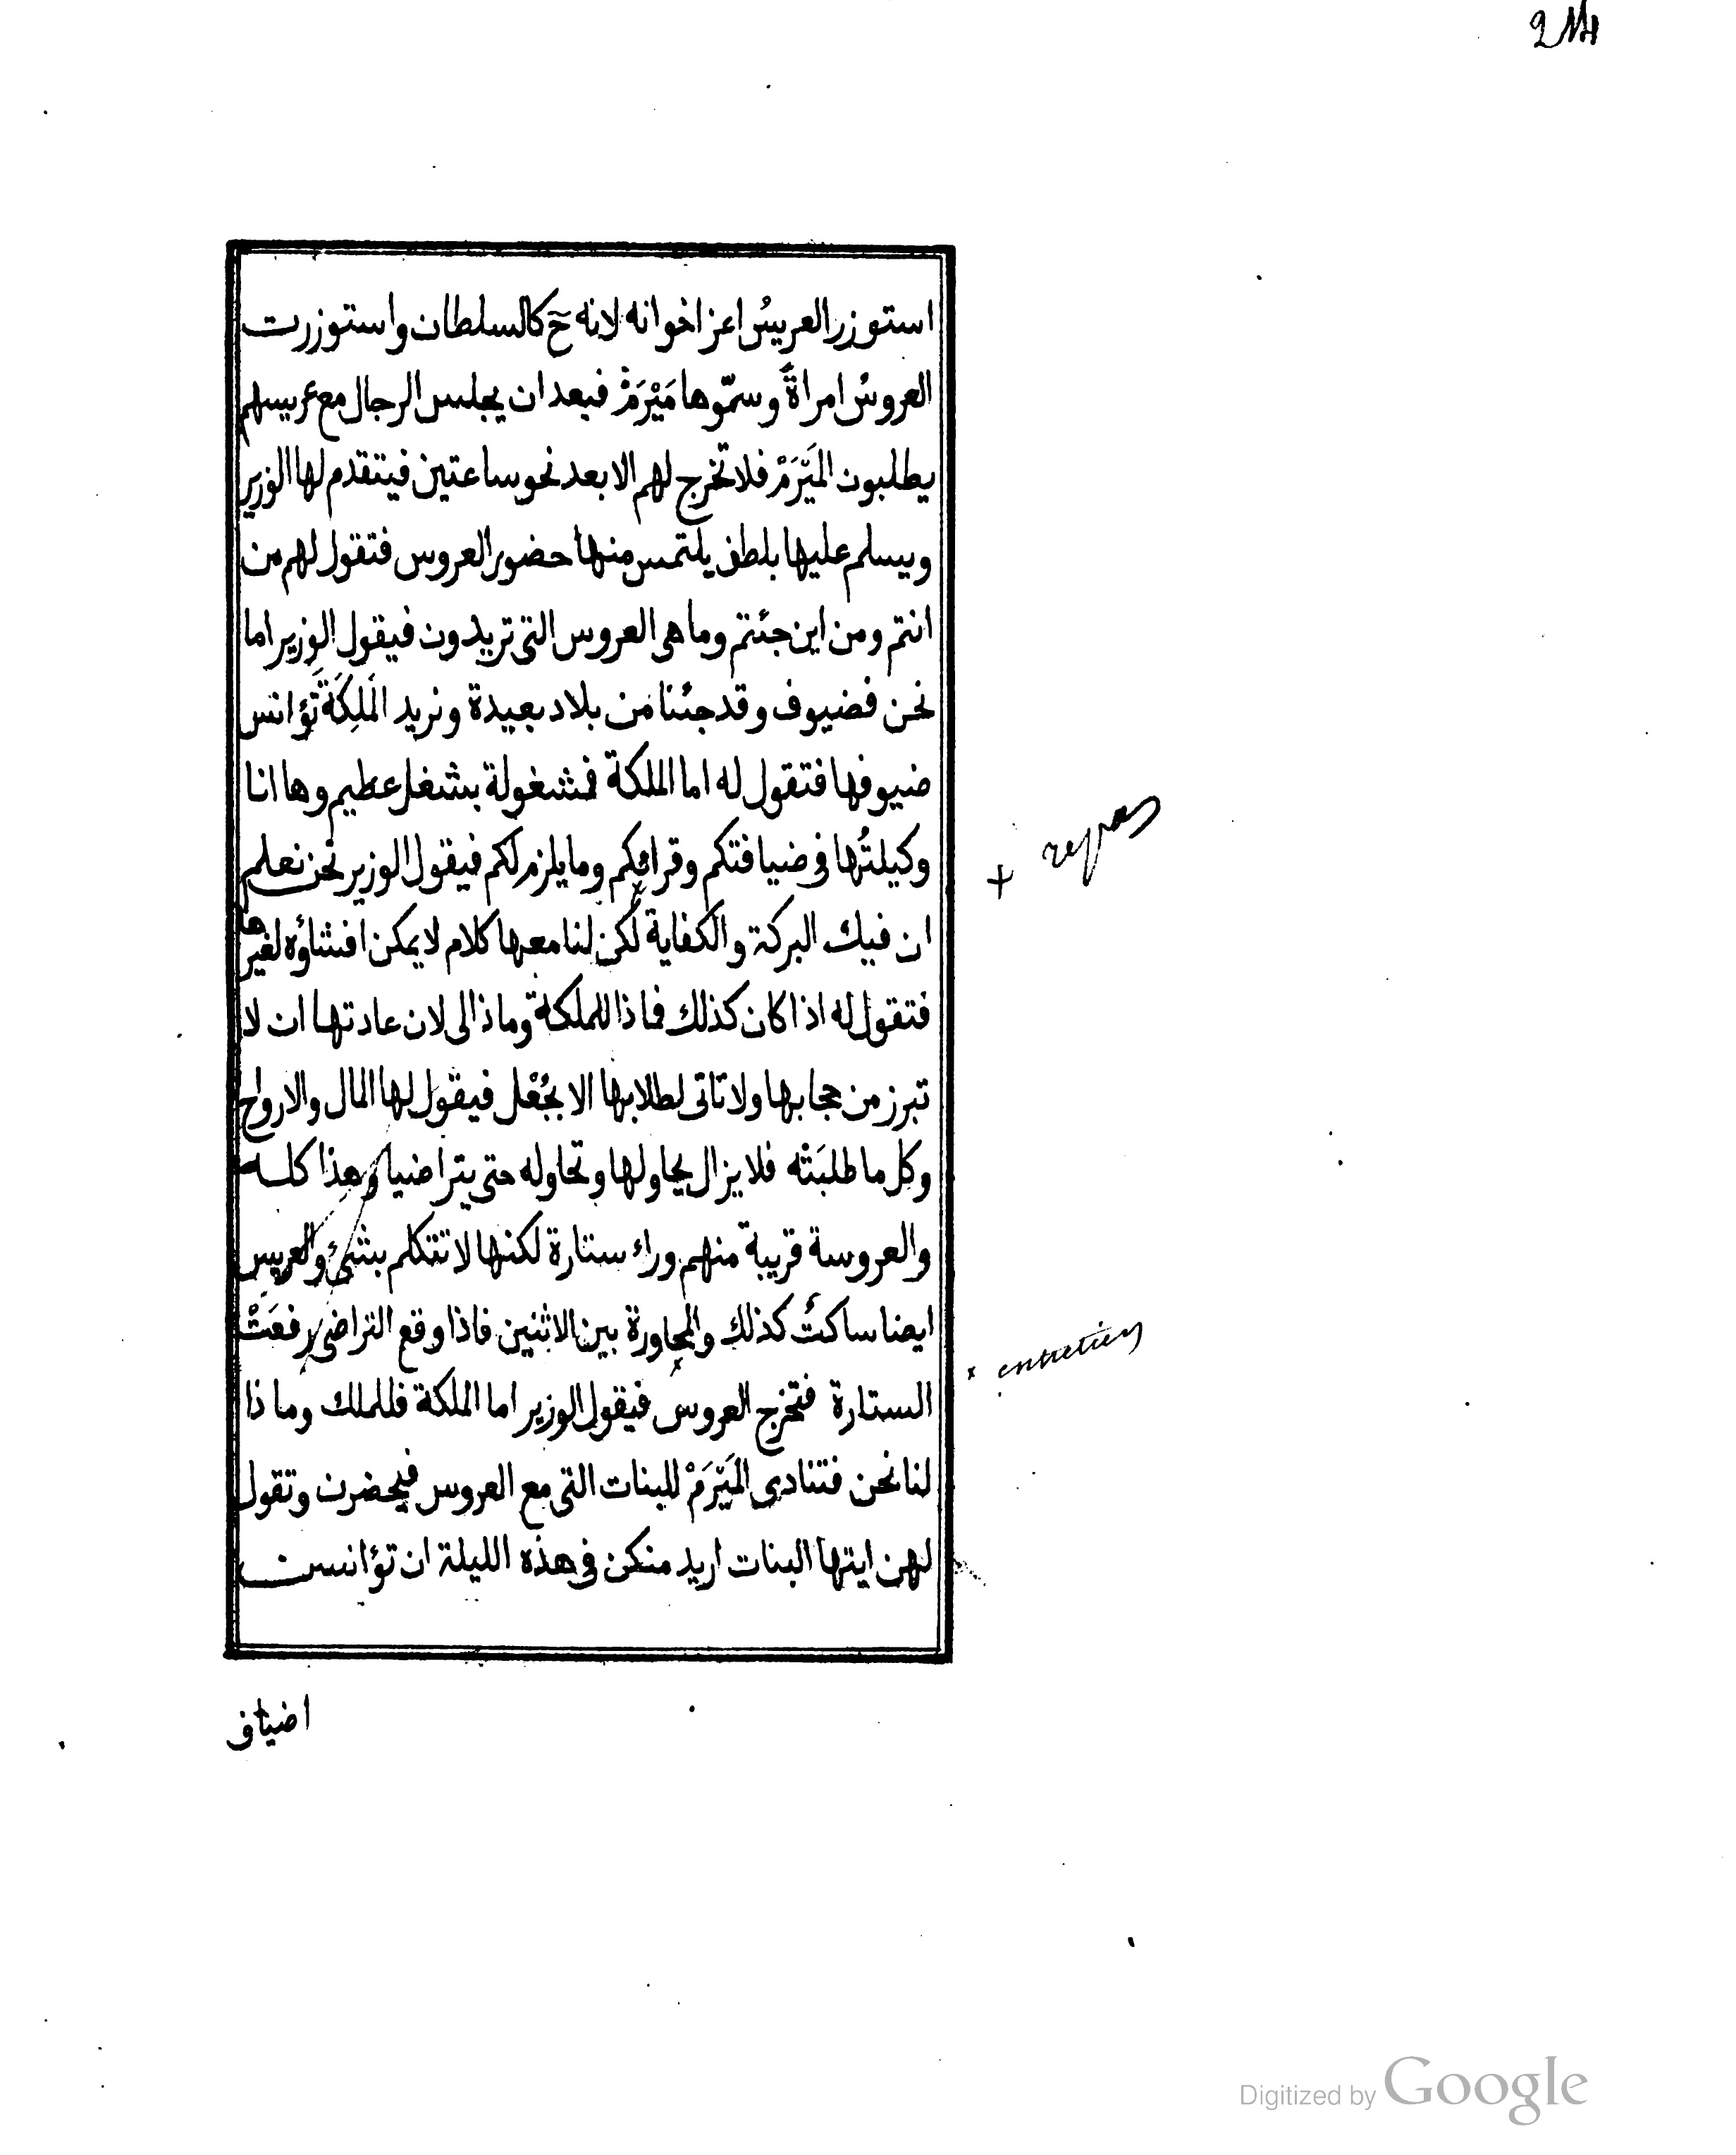 214
استوزر العريسُ اعز اخوانه لانه ح كالسلطان واستوزرت
العروسُ امراةً وسمّوها مَيْرَمْ فبعد ان يجلس الرجال مع عريسهم
يطلبون المَيْرَمْ فلا تخرج لهم الا بعد نحو ساعتين فيتقدم لها الوزير
ويسلم عليها بلطف يلتمس منها حضور العروس فتقول لهم من
انتم ومن اين جئتم وما هى العروس التى تريدون فيقول الوزير اما
نحن فضيوف وقد جئنا من بلاد بعيدة ونريد المَلِكَةَ تؤانس
ضيوفها فتقول له اما الملكة فمشغولة بشغل عظيم وها انا
وكيلتُها فى ضيافتكم وقراكم وما يلزم لكم فيقول الوزير نحن نعلم
+ repas
ان فيك البركة والكفاية لكن لنا معها كلام لا يمكن افشاؤه لغيرها
فتقول له اذا كان كذلك فماذا للملكة وماذا لى لان عادتها ان لا
تبرز من حجابها ولا تاتى لطلابها الا بجُعْل فيقول لها المال والارواح
وكل ما طلبَتْه فلا يزال يحاولها وتحاوله حتى يتراضيا وهذا كله
والعروسة قريبة منهم وراء ستارة لكنها لا تتكلم بشئ والعريس
ايضا ساكتٌ كذلك والمحاورة بين الاثنين فاذا وقع التراضى رفعَتْ
x entretien
الستارة فتخرج العروس فيقول الوزير اما الملكة فللملك وماذا
لنا نحن فتنادى المَيْرَمْ للبنات التى مع العروس فيحضرن وتقول
لهن ايتها البنات اريد منكن فى هذه الليلة ان تؤانسن
اضيافى
Digitized by Google